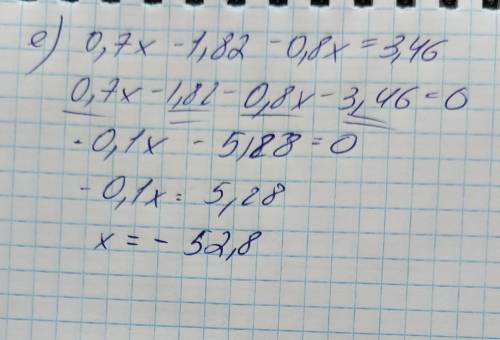 е) 0,7x - 1,82 - 0,8x = 3,46
0,7x - 1,82 - 0,8x - 3,46 = 0
- 0,1x - 5,28 = 0
- 0,1x = 5,28
x = - 52,8